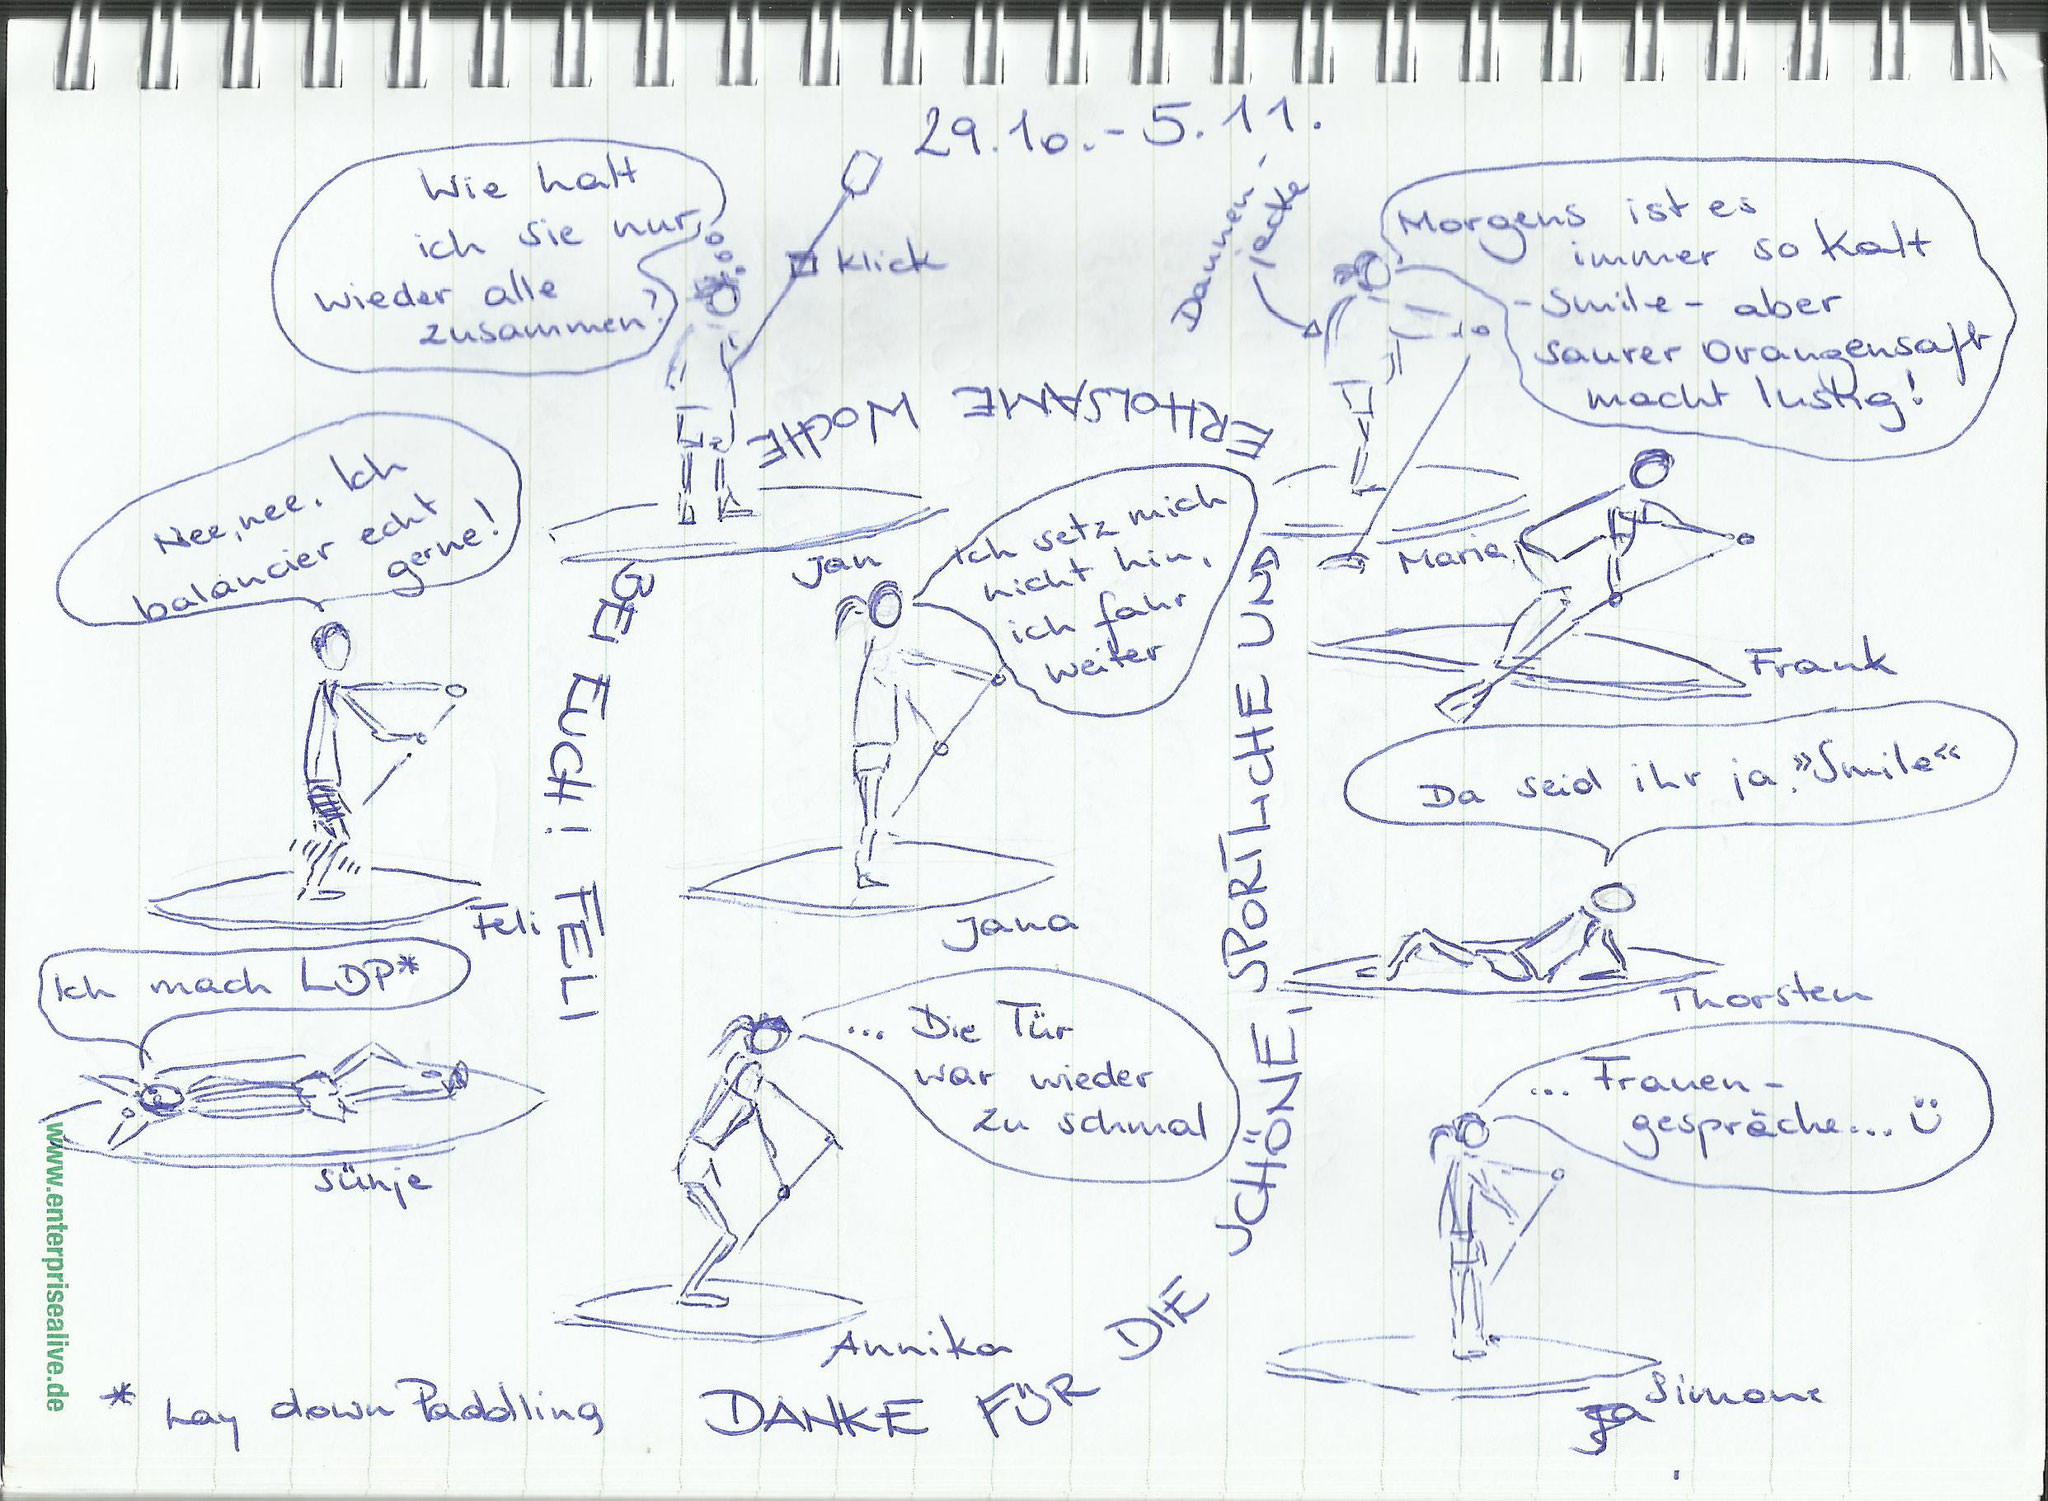 29.10. - 5.11.
Wie halt
ich sie nur
wieder alle
zusammen?
Klick
Jan
Daunen-
jacke
Morgens ist es
immer so kalt
- Smile - aber
saurer Orangensaft
macht lustig!
Maria
Frank
Nee, nee. Ich
balancier echt
gerne!
Feli
Ich setz mich
nicht hin,
ich fahr
weiter
Jana
Da seid ihr ja. »Smile«
Thorsten
Ich mach LDP*
Sünje
... Die Tür
war wieder
zu schmal
Annika
... Frauen-
gespräche... Ü
Simone
* Lay down Paddling
DANKE FÜR DIE SCHÖNE, SPORTLICHE UND ERHOLSAME WOCHE BEI EUCH! FELI
www.enterprisealive.de